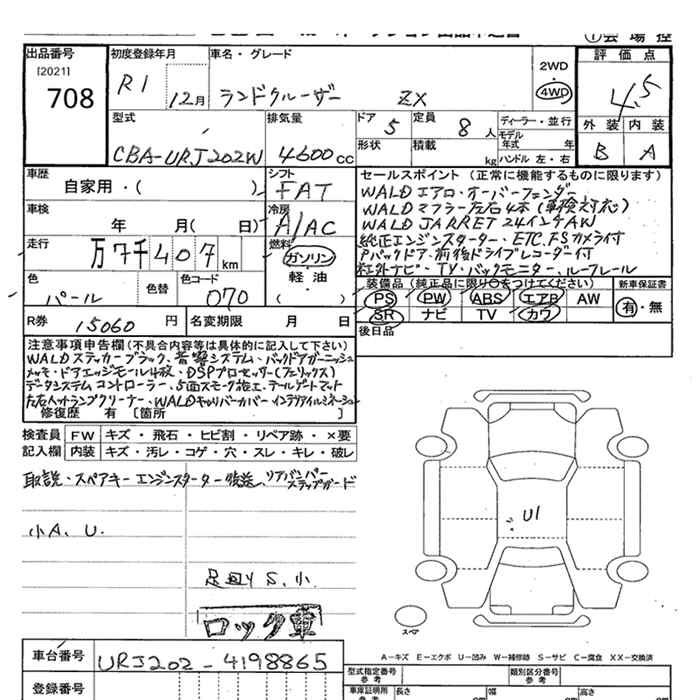 出品番号 初度登録年月 車名・グレード
[2021]
708
R1 12月 ランドクルーザー ZX
2WD
・
4WD
評価点
4.5
外装 内装
B A
型式 排気量 ドア 定員 ディーラー・並行
CBA-URJ202W 4600cc 5 8人
モデル年式 年
形状 積載 kg ハンドル 左・右
車歴 シフト セールスポイント（正常に機能するものに限ります）
自家用・( ) FAT
WALD エアロ・オーバーフェンダー
WALD マフラー左右4本(車検対応)
WALD JARRET 24インチAW
純正エンジンスターター・ETC.FSカメラ付
Pバックドア・前後ドライブレコーダー付
社外ナビ・TV・バックモニター・ルーフレール
車検 冷房
年 月( 日) A/AC
走行 燃料
万7千407km ガソリン
軽油
( )
色 色替 色コード
パール 070
装備品（純正品に限り○をつけてください） 新車保証書
PS PW ABS エアB AW
SR ナビ TV カワ
有・無
R券 15060円 名変期限 月 日
後日品
注意事項申告欄(不具合内容等は具体的に記入して下さい)
WALDステッカーブラック、音響システム・バックドアガーニッシュ
メッキ・ドアエッジモール4枚・DSPプロセッサー(フェリックス)
データシステムコントローラー・5面スモーク施工・テールゲートマット
修復歴 有 [箇所 ]
検査員 FW キズ・飛石・ヒビ割・リペア跡・×要
記入欄 内装 キズ・汚レ・コゲ・穴・スレ・キレ・破レ
取説・スペアキー エンジンスターター後送、リアバンパー
ステップガード
小A、U.
足回りS.小
ロック車
U1
スペア
A－キズ E－エクボ U－凹み W－補修跡 S－サビ C－腐食 XX－交換済
車台番号 URJ202-4198865
型式指定番号 参考 類別区分番号 参考
登録番号
車庫証明用 参考 長さ cm 幅 cm 高さ cm